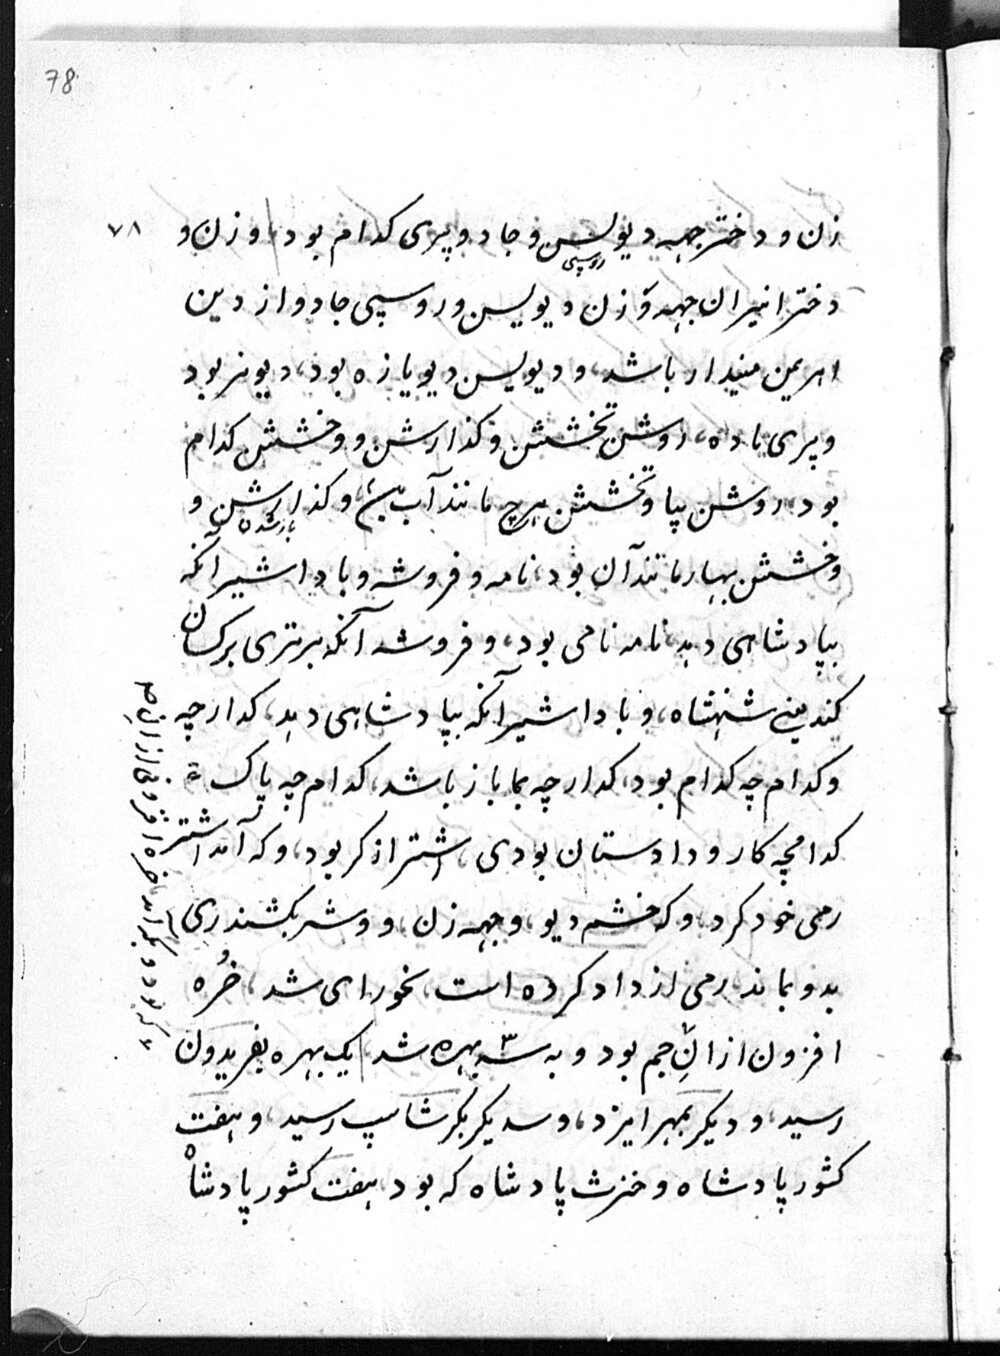 78
۷۸
زن و دختر جهه دیویسن و جادو پری کدام بود، و زن و
روسپی
دختر انیران جهه و زن دیویسن و روسپی جادو از دین
اهریمن مینیدار باشد، و دیویسن دیو یازه بود، دیو نر بود
و پری ماده، روشن تخشش و کذارشن و وخشش کدام
بود، روشن بپا و تخشش هرچ مانند آب و کذارشن و
بازشده
وخشش بهار مانند آن بود، نامه و فروشه و با داشیر آنکه
بپادشاهی دهد، نامه نامی بود، و فروشه آنکه برتری بر کسان
کند یعنی شنهشاه، و با داشیر آنکه بپادشاهی دهد، کدارچه
و کدام چه کدام بود، کدارچه بما باز باشد، کدام چه پاک
کدامچه کار و دادستان بودی، اشتر از کر بود، و که آمد اشتر
رمی خود کرد، و که خشم دیو، و جهه زن، و وشر بکشند ری
بدو بماند، رمی از داد کرده است، بخورای شد، خُره
افزون از انِ جم بود و به ۳ سه بهره شد، یک بهره بفریدون
رسید، و دیکر بمهر ایزد، و سدیکر بکرشاسپ رسید، و هفت
کشور پادشاه و خنرث پادشاه که بود، هفت کشور پادشاه